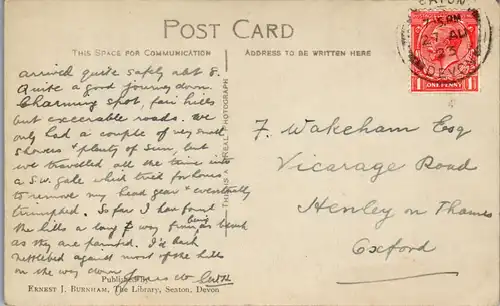 POST CARD
THIS SPACE FOR COMMUNICATION
ADDRESS TO BE WRITTEN HERE
SEATON
7.15 PM
AU
23
DEVON
ONE PENNY
arrived quite safely abt 8.
Quite a good journey down.
Charming spot, fair hills
but execrable roads. We
only had a couple of very small
showers & plenty of sun, but
we travelled all the time into
a S.W. gale which tried for hours
to remove my head gear & eventually
triumphed. So far I have found
the hills a long way from being as bad
as they are painted. I'd
against most of the hills
on the way down
THIS IS A REAL PHOTOGRAPH
F. Wakeham Esq
Vicarage Road
Henley on Thames
Oxford
Published by
ERNEST J. BURNHAM, The Library, Seaton, Devon